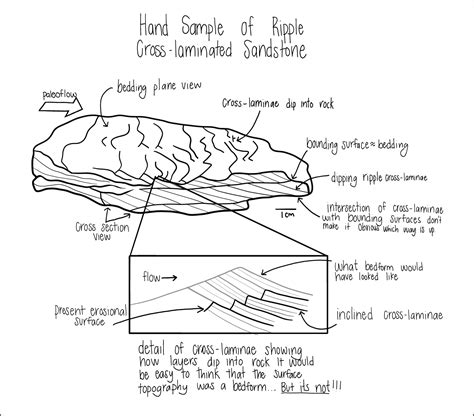 Hand Sample of Ripple
Cross-laminated Sandstone
paleoflow
bedding plane view
cross-laminae dip into rock
bounding surface ≈ bedding
dipping ripple cross-laminae
1cm
Intersection of cross-laminae
with bounding surfaces don't
make it obvious which way is up
Cross section
view
flow →
what bedform would
have looked like
Present erosional
surface
inclined cross-laminae
detail of cross-laminae showing
how layers dip into rock It would
be easy to think that the surface
topography was a bedform... But its not!!!